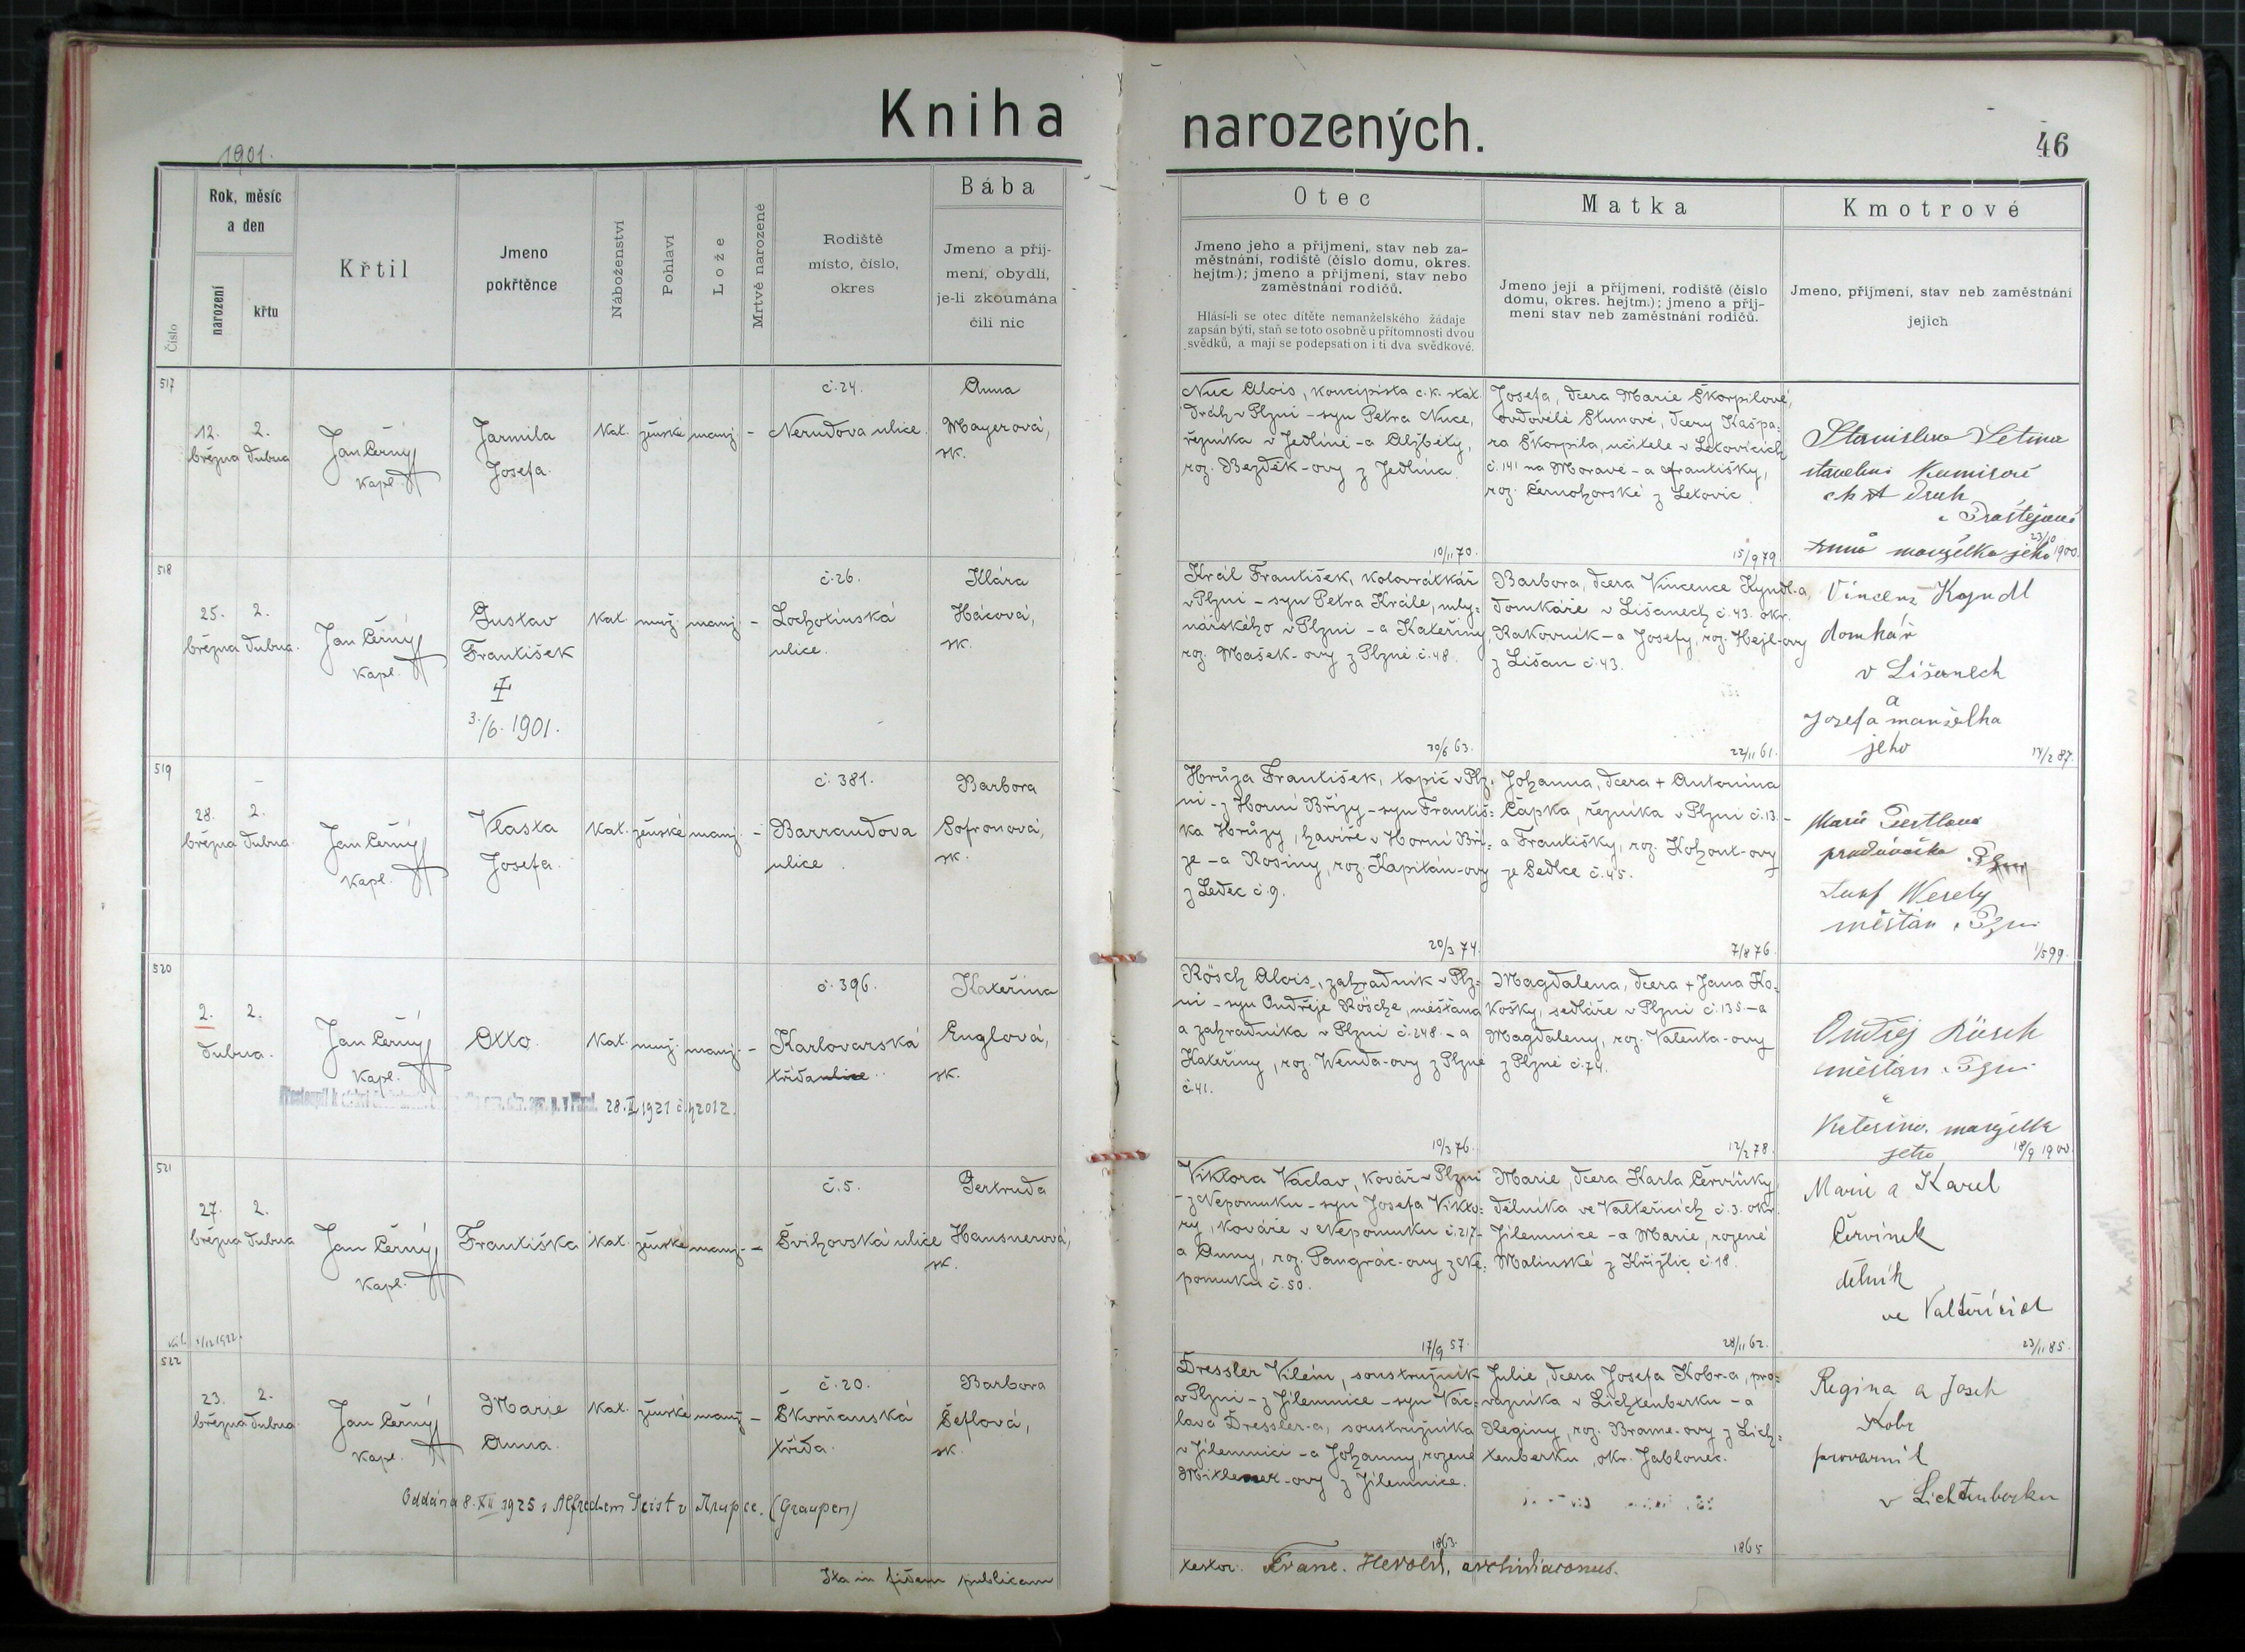 Kniha narozených.
46
1901.
Číslo
Rok, měsíc
a den
narození
křtu
Křtil
Jmeno
pokřtěnce
Náboženství
Pohlaví
Lože
Mrtvě narozené
Rodiště
místo, číslo,
okres
Bába
Jmeno a příj-
mení, obydlí,
je-li zkoumána
čili nic
Otec
Jmeno jeho a příjmení, stav neb za-
městnání, rodiště (číslo domu, okres.
hejtm.); jmeno a příjmení, stav nebo
zaměstnání rodičů.
Hlásí-li se otec dítěte nemanželského žádaje
zapsán býti, staň se toto osobně u přítomnosti dvou
svědků, a mají se podepsati on i ti dva svědkové.
Matka
Jmeno její a příjmení, rodiště (číslo
domu, okres. hejtm.); jmeno a příj-
mení stav neb zaměstnání rodičů.
Kmotrové
Jmeno, příjmení, stav neb zaměstnání
jejich
517
12.
března
2.
dubna
Jan Černý
kapl.
Jarmila
Josefa.
kat.
ženské
manž.
–
č. 24.
Nerudova ulice.
Anna
Mayerová,
zk.
Nuc Alois, koncipista c. k. stát.
drah v Plzni – syn Petra Nuce,
řezníka v Jedlině – a Alžběty,
roz. Bezděk-ovy z Jedlína.
10/11 70.
Josefa, dcera Marie Škorpilové,
ovdovělé Slunové, dcery Kašpa-
ra Škorpila, učitele v Letovicích
č. 141 na Moravě – a Františky,
roz. Černohorské z Letovic.
15/9 79
Stanislav Letina
drah
manželka jeho
23/10 1900.
518
25.
března
2.
dubna.
Jan Černý
kapl.
Gustav
František
3./6. 1901.
kat.
muž.
manž.
–
č. 26.
Lochotínská
ulice.
Klára
Hácová,
zk.
Král František, kolovrátkář
v Plzni – syn Petra Krále, mly-
nářského v Plzni – a Kateřiny,
roz. Mašek-ovy z Plzně č. 48.
30/6 63.
Barbora, dcera Vincence Kyndl-a,
domkáře v Lišanech č. 43. okr.
Rakovník – a Josefy, roz. Hejl-ovy
z Lišan č. 43.
22/11 61.
Vincenz Kyndl
domkář
v Lišanech
a
Josefa manželka
jeho
14/2 87.
519
28.
března
2.
dubna.
Jan Černý
kapl.
Vlasta
Josefa.
kat.
ženské
manž.
–
č. 381.
Barrandova
ulice.
Barbora
Sofronová,
zk.
Hrůza František, topič v Plz-
ni – z Horní Břízy – syn Františ-
ka Hrůzy, havíře v Horní Bří-
ze – a Rosiny, roz. Kapitán-ovy
z Ledec č. 9.
20/3 74.
Johanna, dcera + Antonína
Čapka, řezníka v Plzni č. 13. –
a Františky, roz. Kohout-ovy
ze Sedlce č. 45.
7/8 76.
Marie
prodavačka
Wesely
měšťan
1/5 99.
520
2.
dubna.
2.
Jan Černý
kapl.
Otto.
kat.
muž.
manž.
–
č. 396.
Karlovarská
třída ulice.
Kateřina
Englová,
zk.
28. II. 1921 č. j. 2012.
Rösch Alois, zahradník v Plz-
ni – syn Ondřeje Rösche, měšťana
a zahradníka v Plzni č. 248. – a
Kateřiny, roz. Wenda-ovy z Plzně
č. 41.
10/3 76.
Magdalena, dcera + Jana Ko-
košky, sedláře v Plzni č. 135 – a
Magdaleny, roz. Valenta-ovy
z Plzně č. 74.
12/2 78.
Ondřej Rösch
měšťan v Plzni
a
manželka
jeho
18/9 1900
521
27.
března
2.
dubna
Jan Černý
kapl.
Františka
kat.
ženské
manž.
–
č. 5.
Švihovská ulice
Gertruda
Hausnerová,
zk.
1/12 1922.
Viktora Václav, kovář v Plzni
– z Nepomuku – syn Josefa Vikto-
ry, kováře v Nepomuku č. 217 –
a Anny, roz. Pangrác-ovy z Ne-
pomuku č. 50.
17/9 57.
Marie, dcera Karla Červinky,
dělníka ve Valteřicích č. 3. okr.
Jilemnice – a Marie, rozené
Malinské z Křižlic č. 18.
28/11 62.
Marie a Karel
Červinek
dělník
ve Valteřicích
23/11 85.
522
23.
března
2.
dubna
Jan Černý
kapl.
Marie
Anna.
kat.
ženské
manž.
–
č. 20.
Škvrňanská
třída.
Barbora
Šeflová,
zk.
Oddána 8. XII 1925 s Alfredem Geist v Krupce. (Graupen)
Dressler Vilém, soustružník
v Plzni – z Jilemnice – syn Vác-
lava Dressler-a, soustružníka
v Jilemnici – a Johanny, rozené
z Jilemnice.
1863.
Julie, dcera Josefa Kobr-a, pro-
vazníka v Lichtenberku – a
Reginy, roz. Brame-ovy z Lich-
tenberku, okr. Jablonec.
1865
Regina a Josef
Kobr
v Lichtenberku
Ita in fidem publicam
testor. Franc. Herold, archidiaconus.